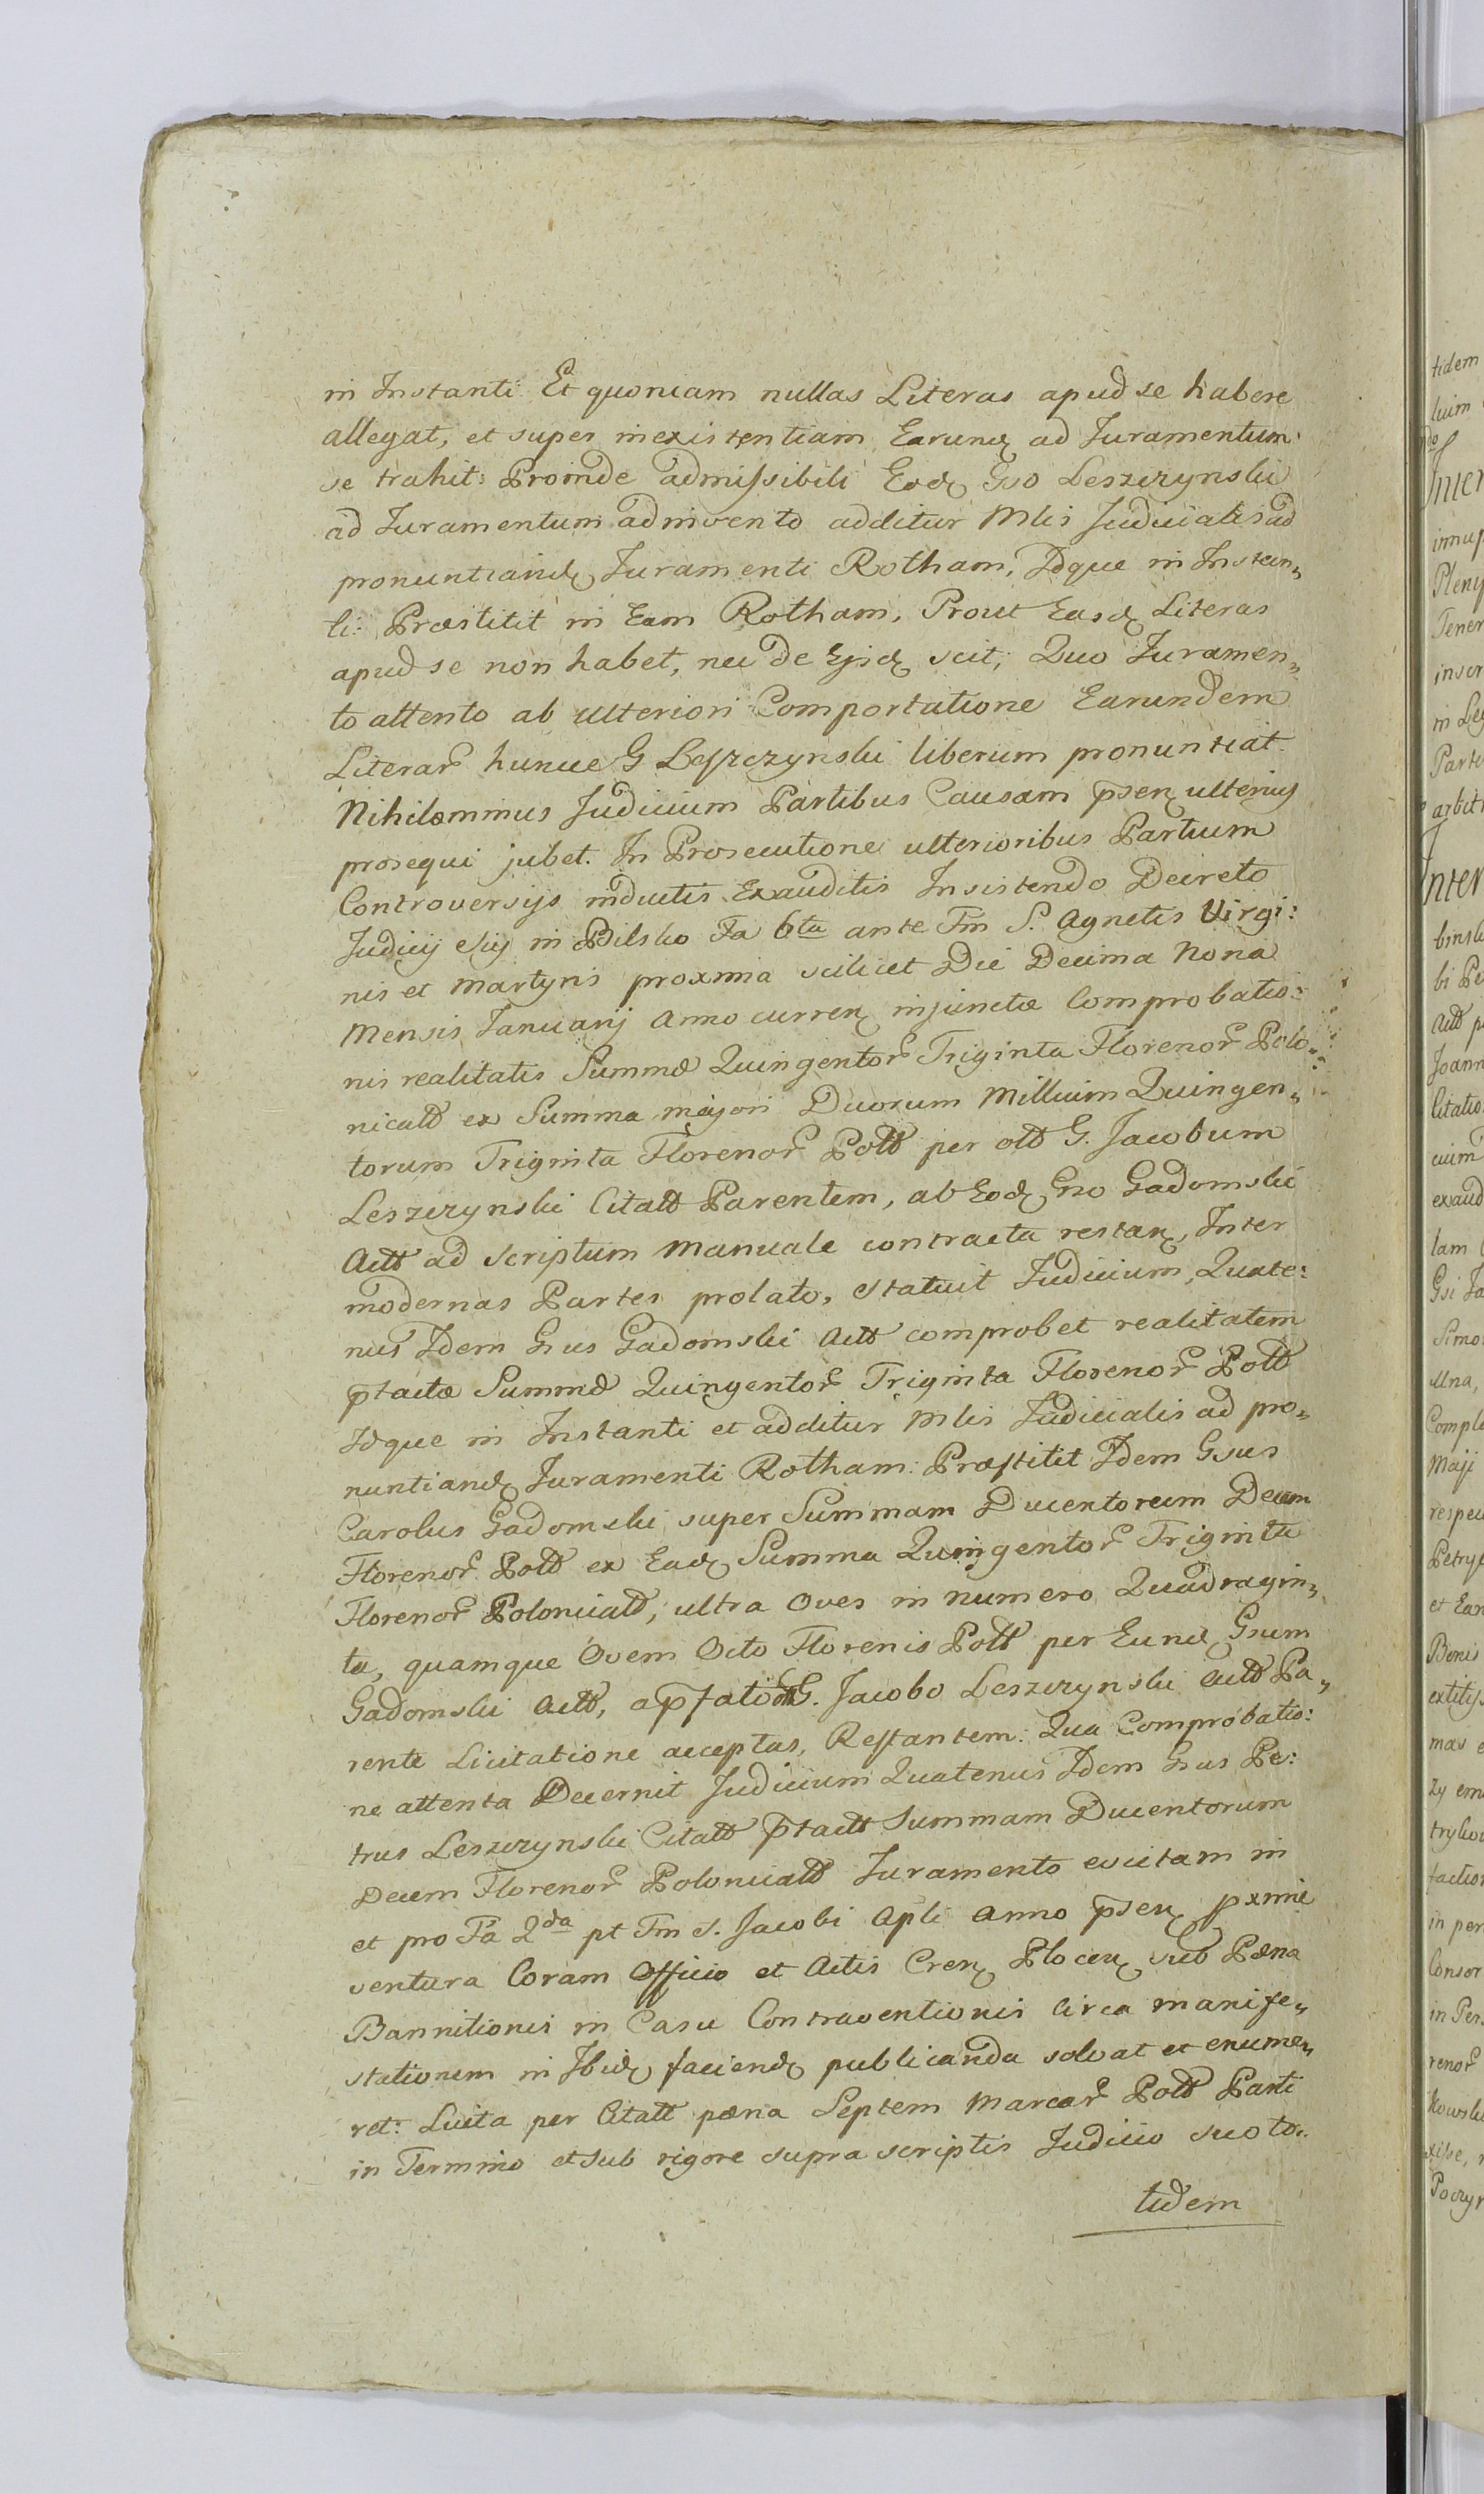 in Instanti. Et quoniam nullas Literas apud se habere
allegat, et super inexistentiam Earund ad Juramentum
se trahit: Proinde admissibili Eod Gso Leszczynski
ad Juramentum adinvento additur Mlis Judicialis ad
pronuntiand Juramenti Rotham, Idque in Instan„
ti: Præstitit in Eam Rotham, Prout Easd Literas
apud se non habet, nec de Ejsd scit, Quo Juramen„
to attento ab ulteriori Comportatione Earundem
Literar hunce G Leszczynski liberum pronuntiat.
Nihilominus Judicium Partibus Causam psen ulterius
prosequi jubet. In Prosecutione ulterioribus Partium
Controversijs inductis Exauditis Insistendo Decreto
Judicij Sui in Bilsko Fa 6ta ante Fm S. Agnetis Virgi:
nis et Martyris proxima scilicet Die Decima Nona
Mensis Januarij Anno curren injunctæ Comprobatio:
nis realitatis Summæ Quingentor Triginta Florenor Polo„
nicalt ex Summa majori Duorum Millium Quingen„
torum Triginta Florenor Poltt per olt G. Jacobum
Leszczynski Citatt Parentem, ab Eod Gno Gadomski
Actt ad Scriptum Manuale contracta restan, Inter
modernas Partes prolato, Statuit Judicium, Quate:
nus Idem Gsus Gadomski Actt comprobet realitatem
ptactæ Summæ Quingentor Triginta Florenor Poltt
Idque in Instanti et additur Mlis Judicialis ad pro„
nuntiand Juramenti Rotham: Præstitit Idem Gsus
Carolus Gadomski super Summam Ducentorum Decem
Florenor Poltt ex Ead Summa Quingentor Triginta
Florenor Polonicalt, ultra Oves in numero Quadragin„
ta, quamque Ovem Octo Florenis Poltt per Eund Gsum
Gadomski Actt, a pfato G. Jacobo Leszczynski Actt Pa„
rente Licitatione acceptas, Restantem. Qua Comprobatio:
ne attenta Decernit Judicium Quatenus Idem Gsus Pe:
trus Leszczynski Citatt ptactt Summam Ducentorum
Decem Florenor Polonicalt Juramento evictam in
et pro Fa 2da pt Fm S. Jacobi Apli Anno psen pxime
ventura Coram Officio et Actis Cren Plocen sub Pæna
Bannitionis in Casu Contraventionis circa manife„
stationem in Ibid faciend publicanda solvat et enume„
ret: Luita per Citatt pæna Septem Marcar Poltt Parti
in Termino et sub rigore supra scriptis Judicio suo to„
tidem